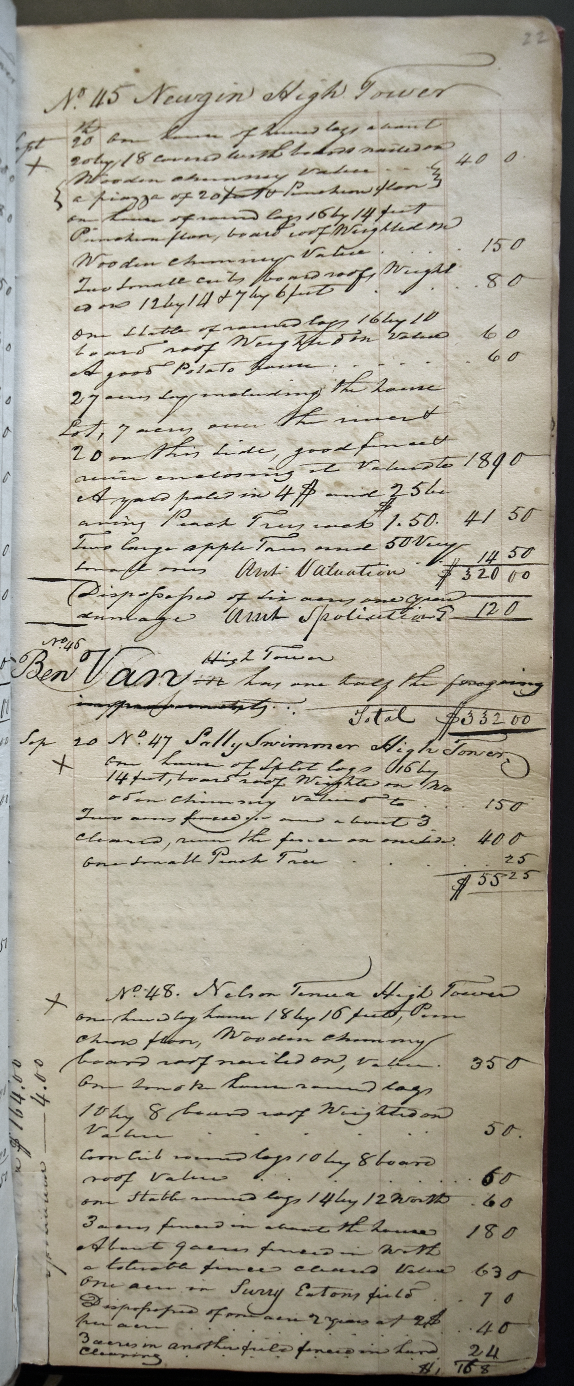 22
No. 45 Newgin High Tower
Sept 20th One house of hewed logs about
20 by 18 covered with boards nailed on
Wooden chimney Value 40 0
a piazza of 20 feet & Puncheon floor
on house of round logs 16 by 14 feet
Puncheon floor, board roof Weighted on
Wooden chimney Value . . . . 15 0
Two small cribs, board roofs, Weight
ed on 12 by 14 & 7 by 6 feet . . 8 0
One Stable of round logs 16 by 10
board roof Weighted on Value 6 0
A good Potato house . . . . . 6 0
27 acres including the house
Lot, 7 acres over the river &
20 on this side, good fence &
river enclosing it Valued to 189 0
A yard paled in 4$ and 25 be
aring Peach Trees each $1.50. 41 50
Two large apple Trees and 50 Very
small ones 14 50
Amt Valuation $320 00
Dispossessed of six acres one year
damage Amt Spoliation 12 0
No. 46
Ben Van High Tower
has one half the foregoing
improvements
Total $332 00
Sep 20 No. 47 Sally Swimmer High Tower
One house of Split logs 16 by
14 feet, board roof Weighted on Wo
oden chimney Valued to . . 15 0
Two acres and about 3
cleared, river the fence on one side 40 0
One small Peach Tree . . . . 25
$55 25
No. 48. Nelson High Tower
One hewed log house 18 by 16 feet, Pun
cheon floor, Wooden chimney
board roof nailed on, Value. 35 0
One smoke house round logs
10 by 8 board roof Weighted on
Value . . . . . 5 0.
Corn Crib round logs 10 by 8 board
roof Value . . . . . 6 0
One Stable round logs 14 by 12 Worth . 6 0
3 acres fenced in about the house 18 0
About 9 acres fenced in With
a tolerable fence cleared Value 63 0
One acre in Surry Eatons field . 7 0
Dispossessed of one acre 2 years at 2$
per acre . . . . . . 4 0
3 acres in another field fenced in hard
clearing . . . . . 24
168
$164.00
4.00